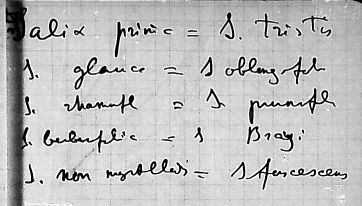 Salix prinic = S. Tristis
S. glauca = S oblongifl
S. rhamnfl = S prunifl
S. berberfolic = S Brayi
S. non myrtilloid = S fuscescens